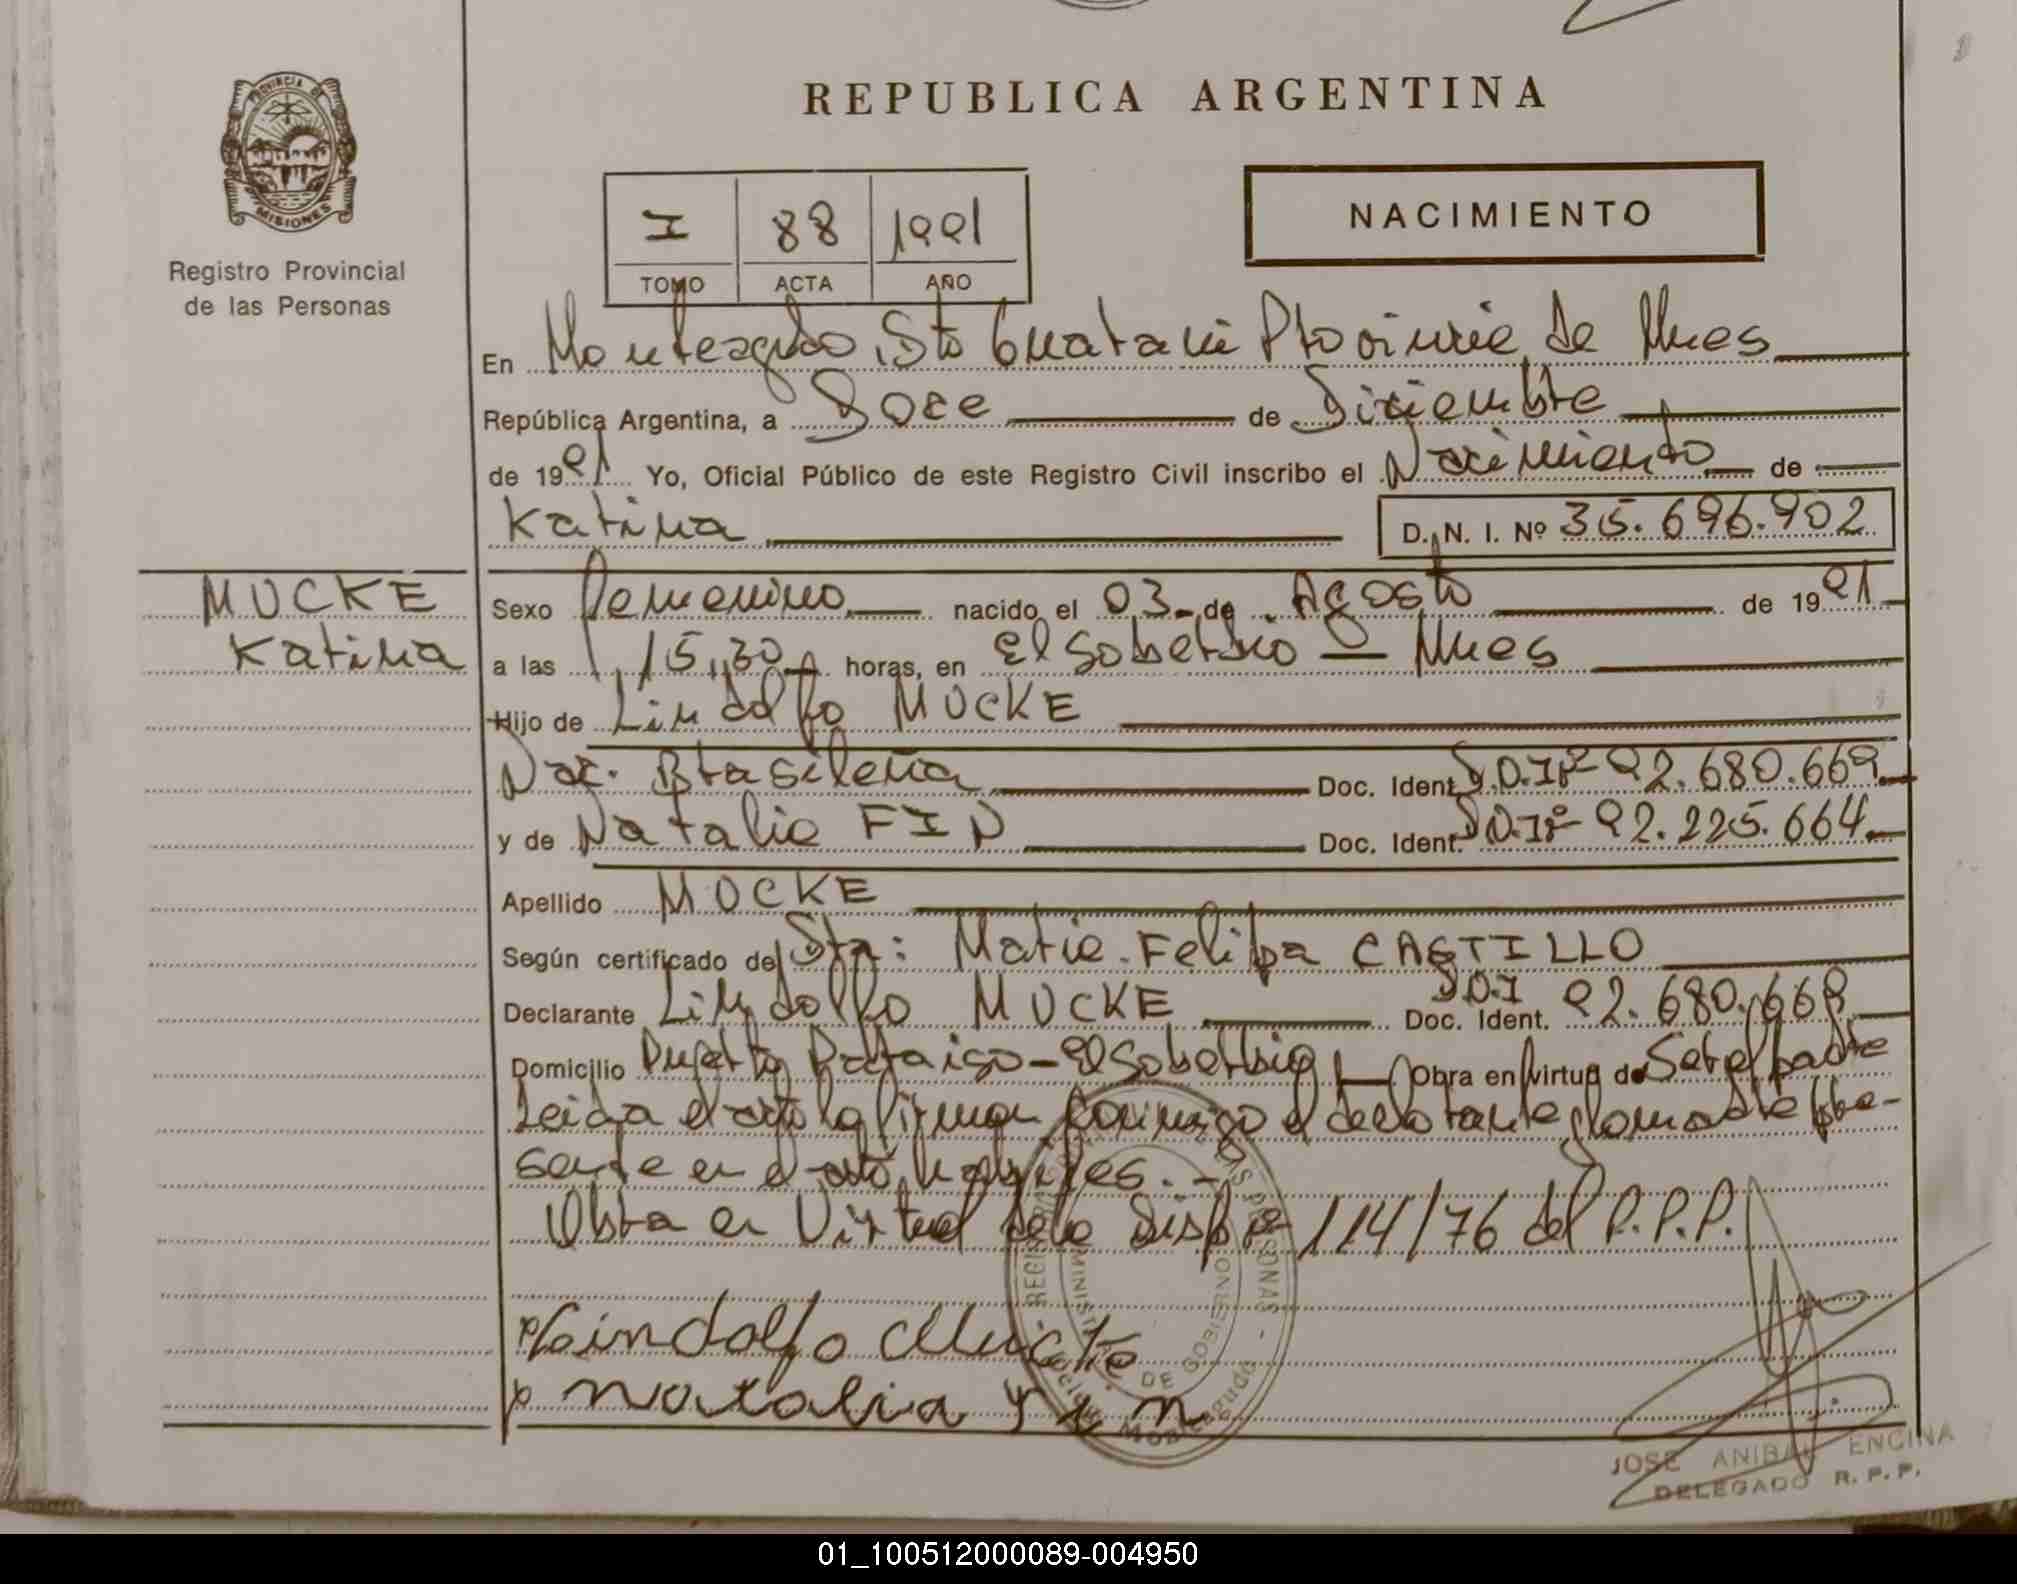 PROVINCIA DE
MISIONES
Registro Provincial
de las Personas
REPUBLICA ARGENTINA
I 88 1991
TOMO ACTA AÑO
NACIMIENTO
En Monteagudo, Dto Guarani Provincie de Mnes
República Argentina, a Doce de Diciembre
de 1991 Yo, Oficial Público de este Registro Civil inscribo el Nacimiento de
Katina D. N. I. Nº 35.696.902
MUCKE
Katina
Sexo Femenino nacido el 03 de Agosto de 1991
a las 15,30 horas, en El Soberbio - Mnes
Hijo de Lindolfo MUCKE
Nac. Brasileña Doc. Ident. D.N.Iº 92.680.669
y de Natalia FIN Doc. Ident. D.N.Iº 92.225.664
Apellido MUCKE
Según certificado de Sta: Maria Felipa CASTILLO
Declarante Lindolfo MUCKE Doc. Ident. D.N.I 92.680.669
Domicilio Puerto Paraiso - El Soberbio Obra en virtud de Ser el padre
Leida el acta la firman conmigo el declarante y la madre pre-
sente en el acto
Obra en Virtud de la Disp. 114/76 del R.P.P.
Lindolfo Mucke
Natalia Fin
DE GOBIERNO
JOSE ANIBAL ENCINA
DELEGADO R. P. P.
01_100512000089-004950